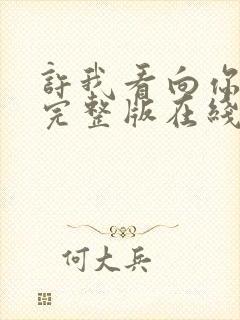 許我看向你
完整版在綫
何大兵